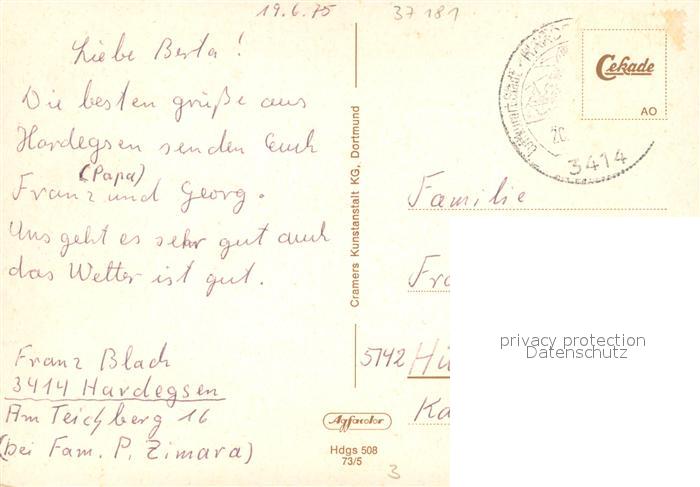 19.6.75
37181
Liebe Berta!
Die besten grüße aus
Hardegsen senden Euch
(Papa)
Franz und Georg.
Uns geht es sehr gut auch
das Wetter ist gut.
Franz Blach
3414 Hardegsen
Am Teichberg 16
(bei Fam. P. Zimara)
Cramers Kunstanstalt KG, Dortmund
Agfacolor
Hdgs 508
73/5
3
Cekade
AO
3414
Familie
Fra
5142 Hü
Ka
privacy protection
Datenschutz